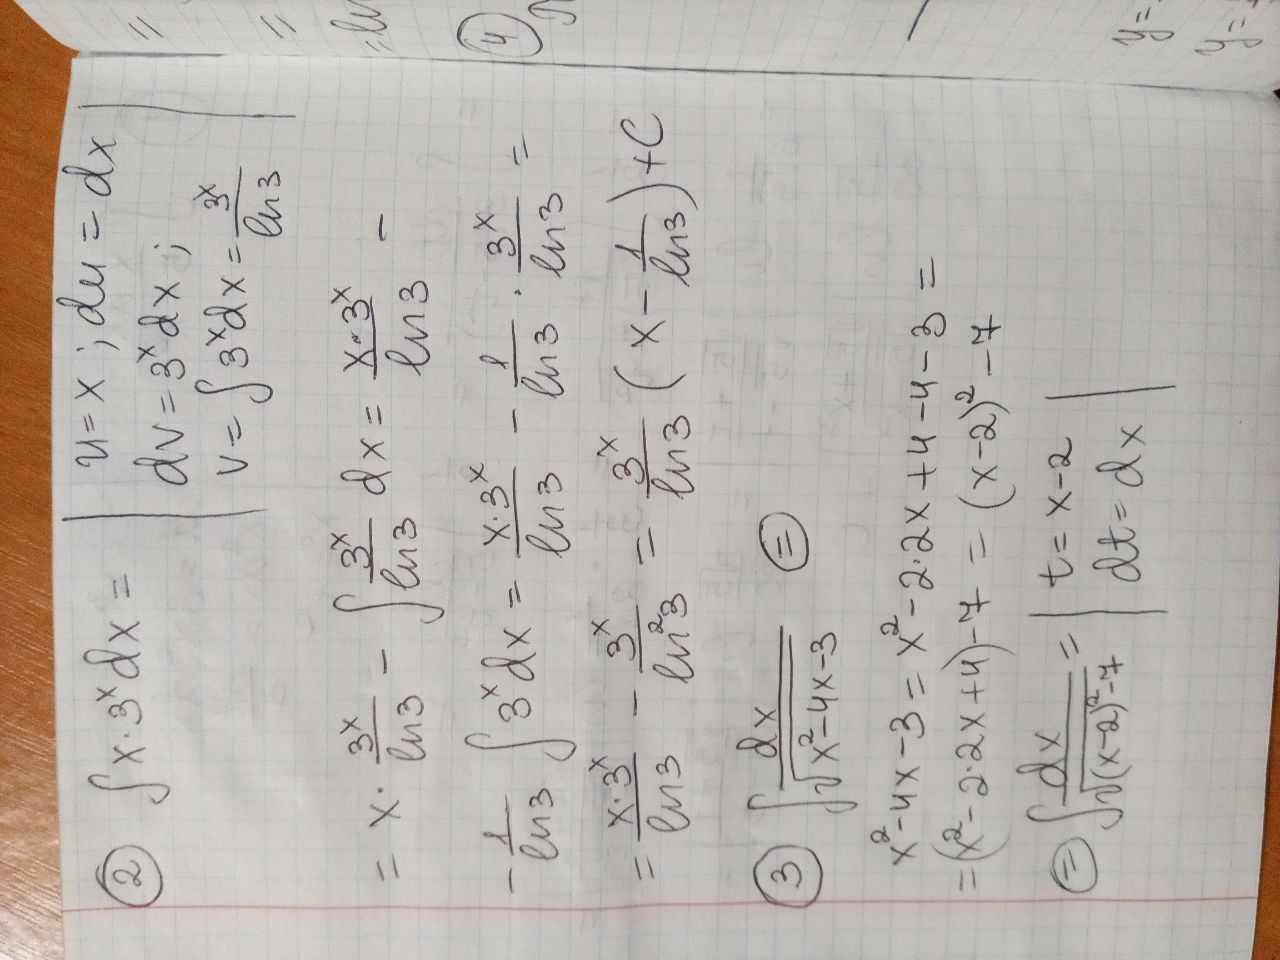 ② ∫ x·3ˣ dx = | u = x ; du = dx
dv = 3ˣ dx ;
v = ∫ 3ˣ dx = 3ˣ/ln3 |
= x · 3ˣ/ln3 − ∫ 3ˣ/ln3 dx = x·3ˣ/ln3 −
− 1/ln3 ∫ 3ˣ dx = x·3ˣ/ln3 − 1/ln3 · 3ˣ/ln3 =
= x·3ˣ/ln3 − 3ˣ/ln²3 = 3ˣ/ln3 (x − 1/ln3) + C
③ ∫ dx/√(x²−4x−3) ⊜
x²−4x−3 = x²−2·2x+4−4−3 =
= (x²−2·2x+4)−7 = (x−2)²−7
⊜ ∫ dx/√((x−2)²−7) = | t = x−2
dt = dx |
=
=
= ln
④
y=
y=